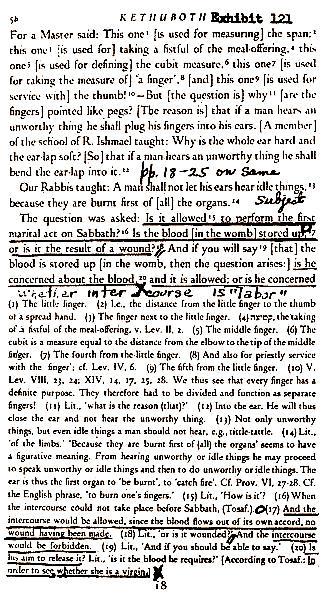 5b KETHUBOTH Exhibit 121
For a Master said: This one¹ [is used for measuring] the span;²
this one³ [is used for] taking a fistful of the meal-offering,⁴ this
one⁵ [is used for defining] the cubit measure,⁶ this one⁷ [is used
for taking the measure of] 'a finger',⁸ [and] this one⁹ [is used for
service with] the thumb!¹⁰—But [the question is] why¹¹ [are the
fingers] pointed like pegs? [The reason is] that if a man hears an
unworthy thing he shall plug his fingers into his ears. [A member]
of the school of R. Ishmael taught: Why is the whole ear hard and
the ear-lap soft? [So] that if a man hears an unworthy thing he shall
bend the ear-lap into it.¹² pp. 18-25 on Same
Our Rabbis taught: A man shall not let his ears hear idle things,¹³
because they are burnt first of [all] the organs.¹⁴ Subject
The question was asked: Is it allowed¹⁵ to perform the first
marital act on Sabbath?¹⁶ Is the blood [in the womb] stored up¹⁷
or is it the result of a wound?¹⁸ And if you will say¹⁹ [that] the
blood is stored up [in the womb, then the question arises:] is he
concerned about the blood,²⁰ and it is allowed; or is he concerned
whether intercourse is "labor"
(1) The little finger. (2) I.e., the distance from the little finger to the thumb
of a spread hand. (3) The finger next to the little finger. (4) קמיצה, the taking
of a fistful of the meal-offering, v. Lev. II, 2. (5) The middle finger. (6) The
cubit is a measure equal to the distance from the elbow to the tip of the middle
finger. (7) The fourth from the little finger. (8) And also for priestly service
with the 'finger'; cf. Lev. IV, 6. (9) The fifth from the little finger. (10) V.
Lev. VIII, 23, 24; XIV, 14, 17, 25, 28. We thus see that every finger has a
definite purpose. They therefore had to be divided and function as separate
fingers! (11) Lit., 'what is the reason (that)?' (12) Into the ear. He will thus
close the ear and not hear the unworthy thing. (13) Not only unworthy
things, but even idle things a man should not hear, e.g., tittle-tattle. (14) Lit.,
'of the limbs.' 'Because they are burnt first of [all] the organs' seems to have
a figurative meaning. From hearing unworthy or idle things he may proceed
to speak unworthy or idle things and then to do unworthy or idle things. The
ear is thus the first organ to 'be burnt', to 'catch fire'. Cf. Prov. VI, 27-28. Cf.
the English phrase, 'to burn one's fingers.' (15) Lit., 'How is it'? (16) When
the intercourse could not take place before Sabbath, (Tosaf.) (17) And the
intercourse would be allowed, since the blood flows out of its own accord, no
wound having been made. (18) Lit., 'or is it wounded?' And the intercourse
would be forbidden. (19) Lit., 'And if you should be able to say.' (20) Is
his aim to release it? Lit., 'is it the blood he requires?' [According to Tosaf.: In
order to see whether she is a virgin.]
18